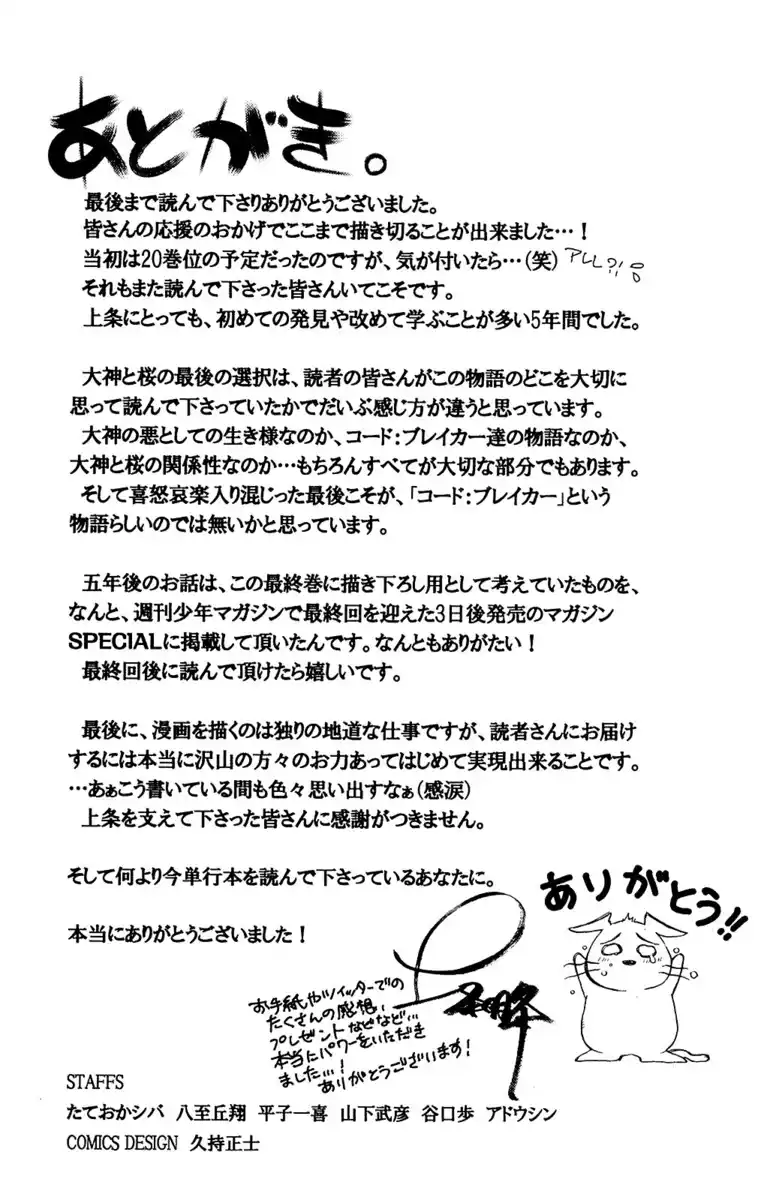 あとがき。
最後まで読んで下さりありがとうございました。
皆さんの応援のおかげでここまで描き切ることが出来ました…!
当初は20巻位の予定だったのですが、気が付いたら…(笑)
それもまた読んで下さった皆さんいてこそです。
上条にとっても、初めての発見や改めて学ぶことが多い5年間でした。
大神と桜の最後の選択は、読者の皆さんがこの物語のどこを大切に
思って読んで下さっていたかでだいぶ感じ方が違うと思っています。
大神の悪としての生き様なのか、コード:ブレイカー達の物語なのか、
大神と桜の関係性なのか…もちろんすべてが大切な部分でもあります。
そして喜怒哀楽入り混じった最後こそが、「コード:ブレイカー」という
物語らしいのでは無いかと思っています。
五年後のお話は、この最終巻に描き下ろし用として考えていたものを、
なんと、週刊少年マガジンで最終回を迎えた3日後発売のマガジン
SPECIALに掲載して頂いたんです。なんともありがたい!
最終回後に読んで頂けたら嬉しいです。
最後に、漫画を描くのは独りの地道な仕事ですが、読者さんにお届け
するには本当に沢山の方々のお力あってはじめて実現出来ることです。
…あぁこう書いている間も色々思い出すなぁ(感涙)
上条を支えて下さった皆さんに感謝がつきません。
そして何より今単行本を読んで下さっているあなたに。
本当にありがとうございました!
ありがとう!!
お手紙やツイッターでの
たくさんの感想、
プレゼントなどなど…
本当にパワーをいただき
ました…!
ありがとうございます!
STAFFS
たておかシバ 八至丘翔 平子一喜 山下武彦 谷口歩 アドウシン
COMICS DESIGN 久持正士